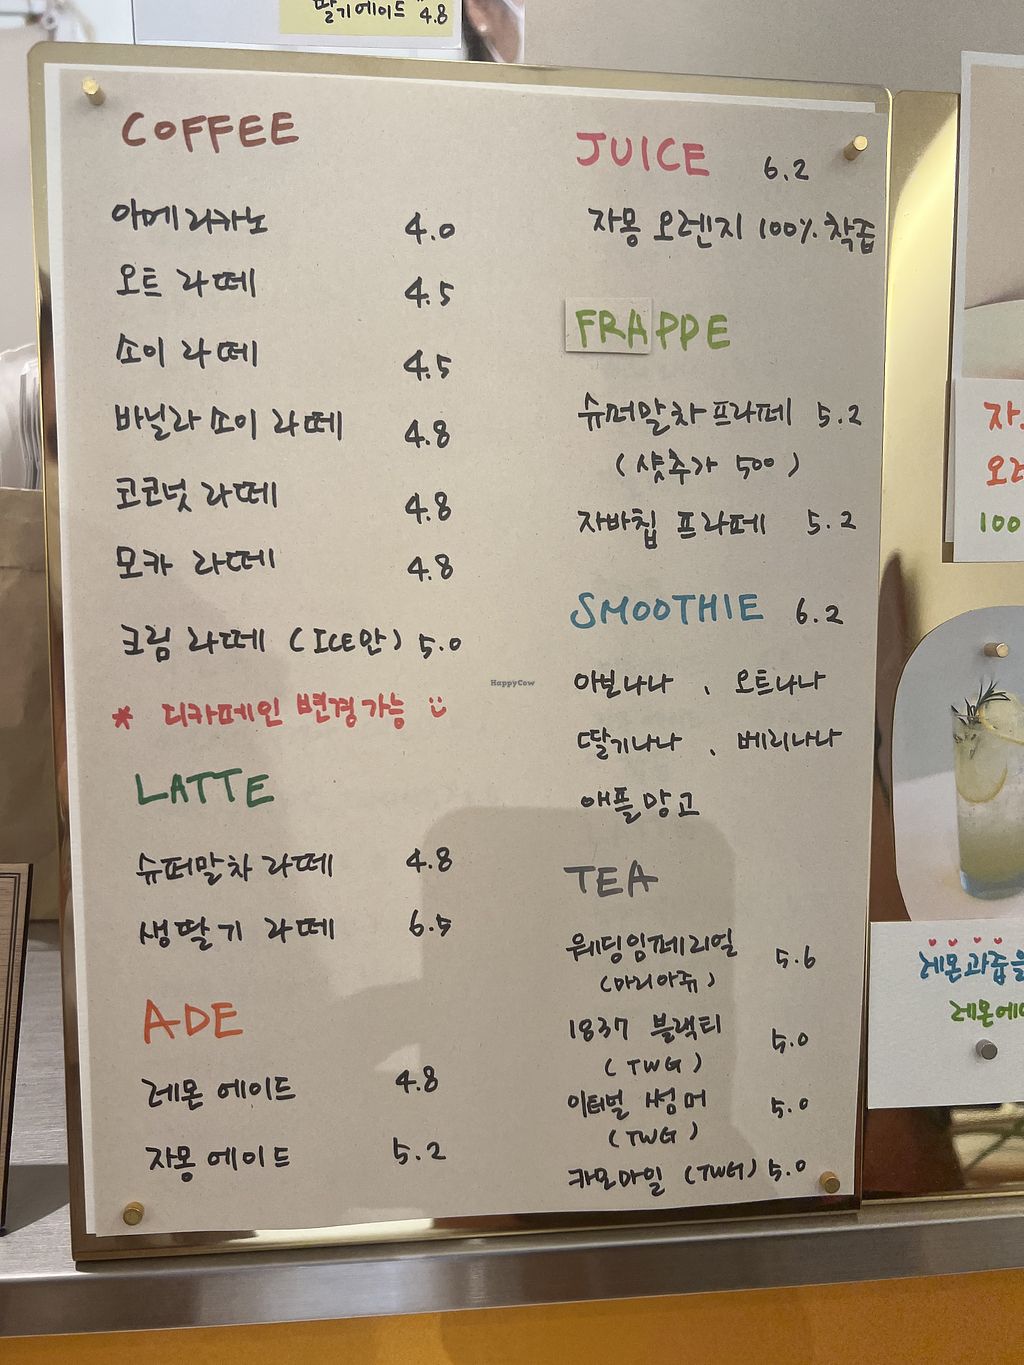 딸기에이드 4.8
COFFEE
아메리카노 4.0
오트 라떼 4.5
소이 라떼 4.5
바닐라 소이 라떼 4.8
코코넛 라떼 4.8
모카 라떼 4.8
크림 라떼 (ICE만) 5.0
* 디카페인 변경가능
LATTE
슈퍼말차 라떼 4.8
생딸기 라떼 6.5
ADE
레몬 에이드 4.8
자몽 에이드 5.2
JUICE 6.2
자몽 오렌지 100% 착즙
FRAPPE
슈퍼말차 프라페 5.2
(샷추가 500)
자바칩 프라페 5.2
SMOOTHIE 6.2
아보나나 , 오트나나
딸기나나 , 베리나나
애플망고
TEA
웨딩임페리얼 5.6
(마리아쥬)
1837 블랙티 5.0
(TWG)
이터널 썸머 5.0
(TWG)
카모마일 (TWG) 5.0
HappyCow
자
오렌
100
레몬과즙을
레몬에이